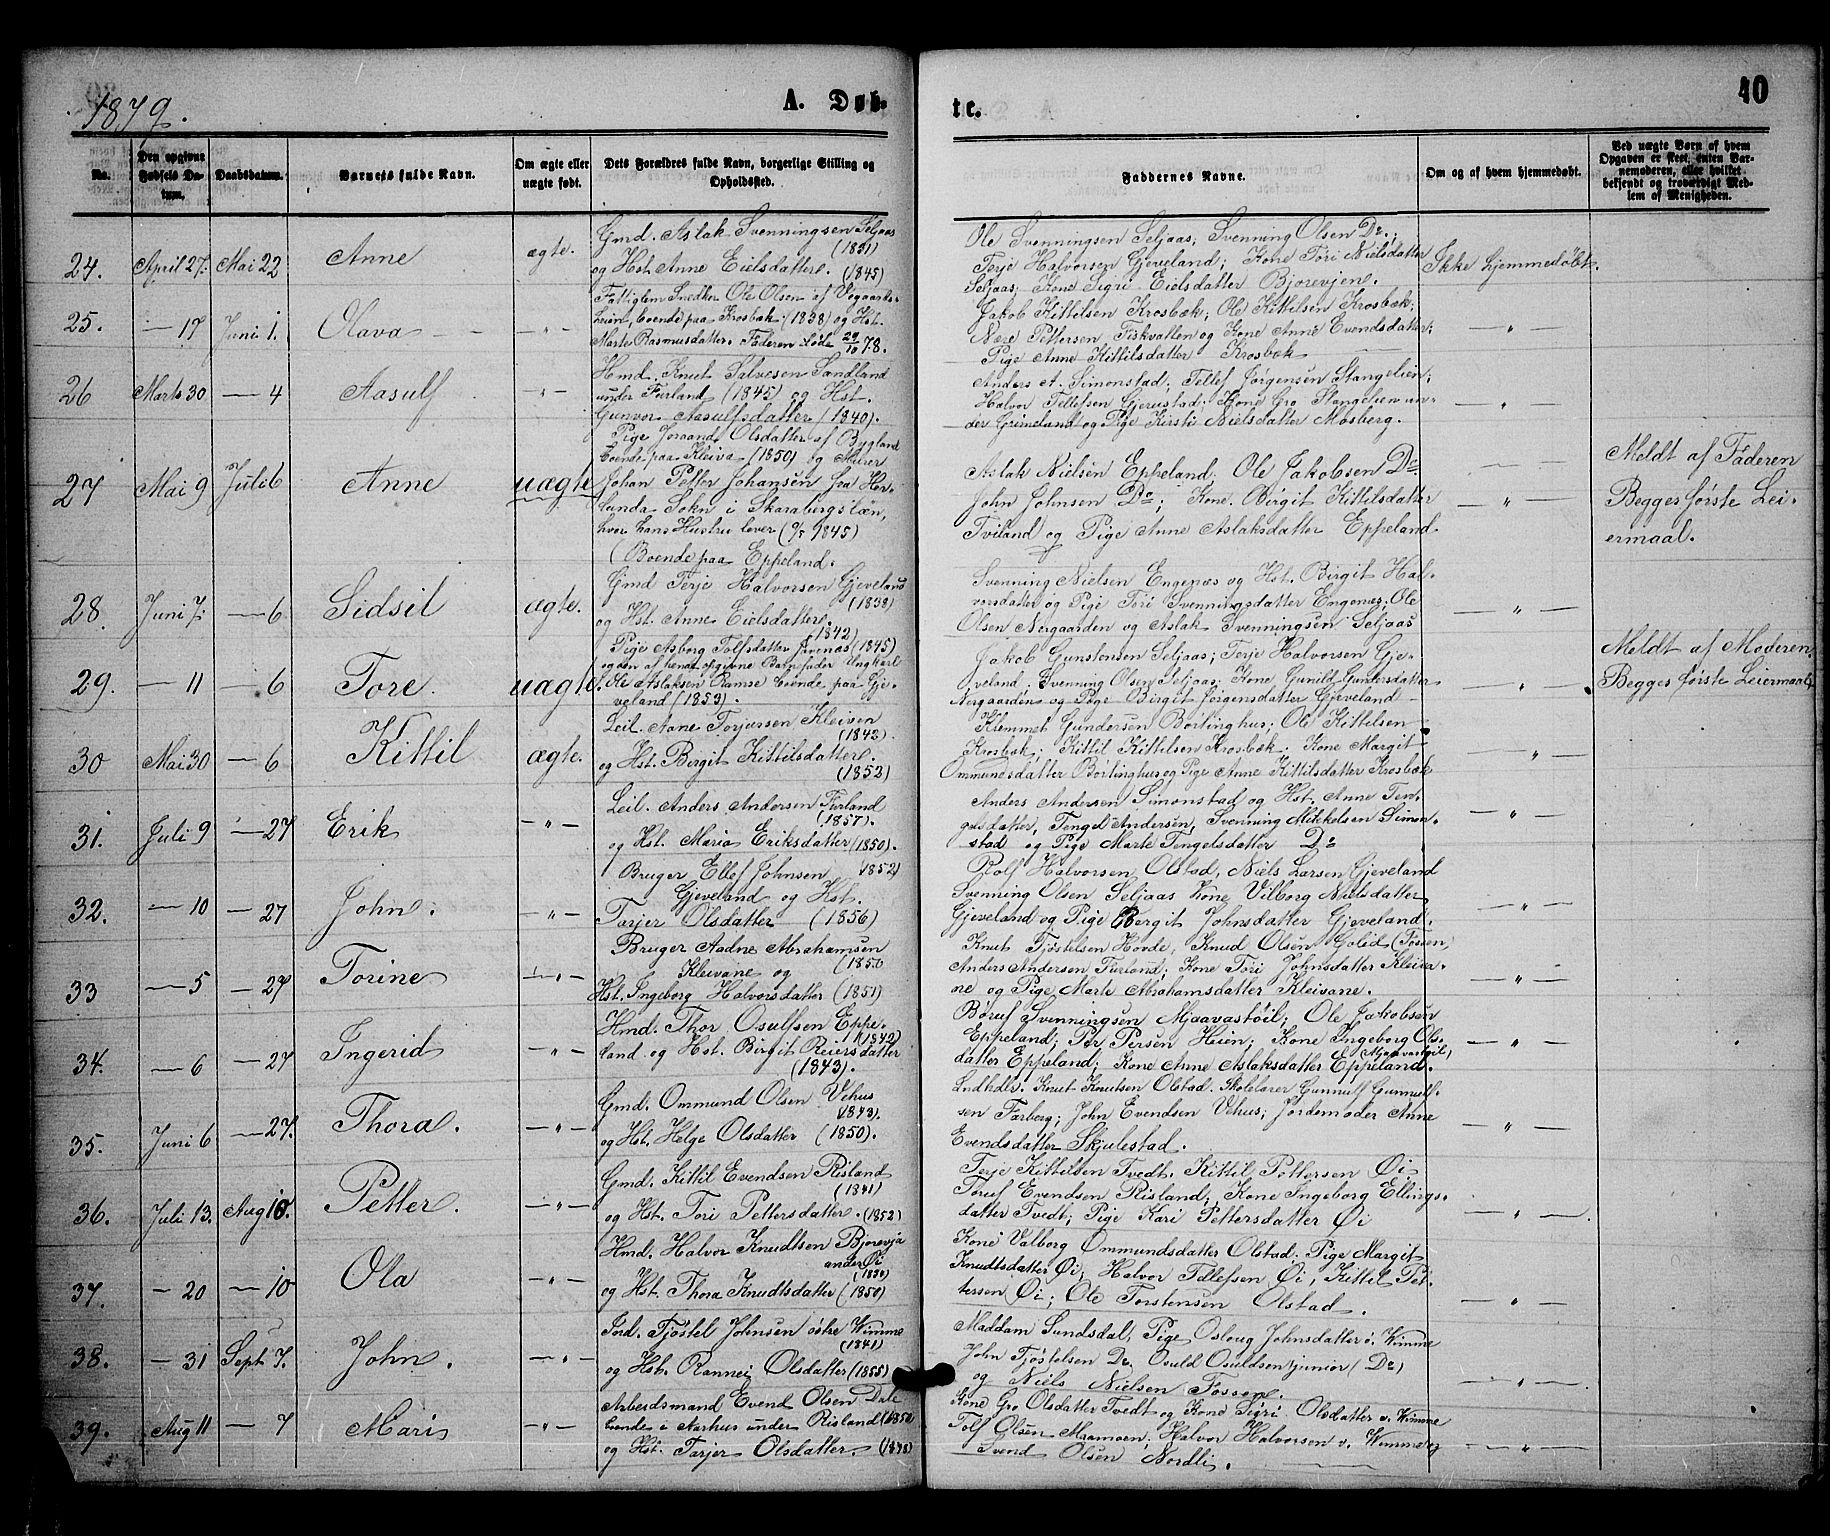 1879.
A. Døb-
te.
40
No.
Den opgivne Fødsels Datum.
Daabsdatum.
Barnets fulde Navn.
Om ægte eller uægte født.
Dets Forældres fulde Navn, borgerlige Stilling og Opholdssted.
Faddernes Navne.
Om og af hvem hjemmedøbt.
Ved uægte Børn af hvem Opgaven er skeet, enten Barnemoderen, eller hvilket bekjendt og troværdigt Medlem af Menigheden.
24. April 27. Mai 22 Anne ægte.
Gmd. Aslak Svenningsen Seljaas
(1831)
og Hst. Anne Eielsdatter. (1845)
Ole Svenningsen Seljaas; Svenning Olsen Do;
Terje Halvorsen Gjeveland; Kone Tori Nielsdatter
Seljaas; Kone Sigri Eielsdatter Bjorevjen.
Ikke hjemmedøbt.
25. — 17 Juni 1. Olava — " —
Fattiglem Snedker Ole Olsen af Vegaards-
heien, boende paa Krosbæk (1838) og Hst.
Marte Rasmusdatter. Faderen døde 29/10 78.
Jakob Kittilsen Krosbæk; Ole Kittilsen Krosbæk;
Nære Pettersen Fiskvatten og Kone Anne Evendsdatter;
Pige Anne Kittilsdatter Krosbæk
— " —
26 Marts 30 — 4 Aasulf — " —
Hmd. Knut Salvesen Sandland
under Furland (1845) og Hst.
Gunvor Aasulfsdatter (1840).
Anders A. Simonstad; Tellef Jørgensen Stangelien;
Halvor Tellefsen Gjerustad; Kone Gro Stangelien un-
der Grimeland og Pige Kirsti Nielsdatter Mosberg.
— " —
27 Mai 9 Juli 6 Anne uægte
Pige Joraand Olsdatter af Bygland
boende paa Kleiva (1850) og Murer
Johan Petter Johansen fra Her-
lunda Sokn i Skarabergslæn,
hvor hans Hustru lever (9/5 1845)
(Boende paa Eppeland.
Aslak Nielsen Eppeland; Ole Jakobsen Do
John Johnsen Do; Kone Birgit Kittilsdatter
Tviland og Pige Anne Aslaksdatter Eppeland
— " —
Meldt af Faderen
Begges første Lei-
ermaal.
28. Juni 7. — 6 Sidsil ægte.
Gmd Terje Halvorsen Gjeveland
(1838)
og Hst. Anne Eielsdatter.
(1842)
Svenning Nielsen Engenæs og Hst. Birgit Hal-
vorsdatter og Pige Tori Svenningsdatter Engenæs; Ole
Olsen Nergaarden og Aslak Svenningsen Seljaas
— " —
29. — 11 — 6 Tore. uægte
Pige Asborg Tolfsdatter (1845)
og den af hende opgivne Barnefader Ungkarl
Ole Aslaksen Ramse boende paa Gje-
veland (1853).
Jakob Gunstensen Seljaas; Terje Halvorsen Gje-
veland; Svenning Olsen Seljaas; Kone Gunild Gundersdatter
Nergaarden og Pige Birgit Jørgensdatter Gjeveland
— " —
Meldt af Moderen.
Begges første Leiermaal
30 Mai 30 — 6 Kittil ægte.
Leil. Aane Torjersen Kleiven
(1843).
og Hst. Birgit Kittilsdatter.
(1852)
Klemmet Gundersen Bortinghus; Ole Kittilsen
Krosbæk; Kittil Kittilsen Krosbæk; Kone Margit
Ommundsdatter Bortinghus og Pige Anne Kittilsdatter Krosbæk
— " —
31. Juli 9 — 27 Erik — " —
Leil. Anders Andersen Furland
(1857).
og Hst. Maria Eriksdatter (1850).
Anders Andersen Simonstad og Hst. Anne Ten-
gelsdatter, Tengel Andersen, Svenning Mikkelsen Simon-
stad og Pige Marte Tengelsdatter Do
— " —
32. — 10 — 27 John. — " —
Bruger Ellef Johnsen (1852)
Gjeveland og Hst.
Tarjer Olsdatter (1856)
Rolf Halvorsen Olstad, Niels Larsen Gjeveland
Svenning Olsen Seljaas Kone Vilborg Nielsdatter
Gjeveland og Pige Bergit Johnsdatter Gjeveland.
— " —
33 — 5 — 27 Torine — " —
Bruger Aadne Abrahamsen
Kleivane og (1856
Hst. Ingeborg Halvorsdatter (1857)
Knut Tjøstelsen Hovde, Knud Olsen Golid (Fossen
Anders Andersen Furland; Kone Tori Johnsdatter Kleiva-
ne og Pige Marte Abrahamsdatter Kleivane.
— " —
34. — 6 — 27 Ingerid — " —
Hmd. Thor Osulfsen Eppe-
(1842)
land og Hst. Birgit Reiersdatter
(1843).
Børuf Svenningsen Mjaavastøil; Ole Jakobsen
Eppeland; Per Persen Heien; Kone Ingeborg Ols-
datter Eppeland; Kone Anne Aslaksdatter Eppeland.
— " —
35. Juni 6 — 27. Thora. — " —
Gmd. Ommund Olsen Vehus
(1843).
og Hst. Helge Olsdatter (1850).
Lndhdlr. Knut Knutsen Olstad. Skolelærer Gunnulf Gunnulf-
sen Farberg; John Evendsen Vehus; Jordemoder Anne
Evendsdatter Skjulestad.
— " —
36. Juli 13. Aug 10. Petter. — " —
Gmd. Kittil Evendsen Risland
(1841)
og Hst. Tori Pettersdatter. (1852)
Terje Kittilsen Tvedt. Kittil Pettersen Øi
Toruf Evendsen Risland; Kone Ingeborg Ellings-
datter Tvedt; Pige Kari Pettersdatter Øi
— " —
37. — 20 — 10 Ola — " —
Hmd. Halvor Knudtsen Bjorevja
under Øi
(1850)
og Hst. Thora Knudtsdatter (1850)
Kone Valborg Ommundsdatter Olstad. Pige Margit
Knudtsdatter Øi; Halvor Tellefsen Øi, Kittil Pet-
tersen Øi; Ole Torstensen Olstad.
— " —
38. — 31 Sept. 7. John. — " —
Ind. Tjøstel Johnsen østre Wimme
(1841)
og Hst. Rannei Olsdatter (1855)
Maddam Sundsdal, Pige Oslaug Johnsdatter ø. Wimme
John Tjøstelsen Do, Osuld Osuldsen junior (Do)
og Niels Nielsen Fossen.
— " —
39. Aug 11 — 7 Mari — " —
Arbeidsmand Evend Olsen Dale
boende i Aarhus under Risland (1852
og Hst. Tarjer Olsdatter.
Kone Gro Olsdatter Tvedt og Kone Sigri Olsdatter v. Wimme
Tolf Olsen Maamoen; Halvor Halvorsen v. Wimme og
Svend Olsen Nordli.
— " —